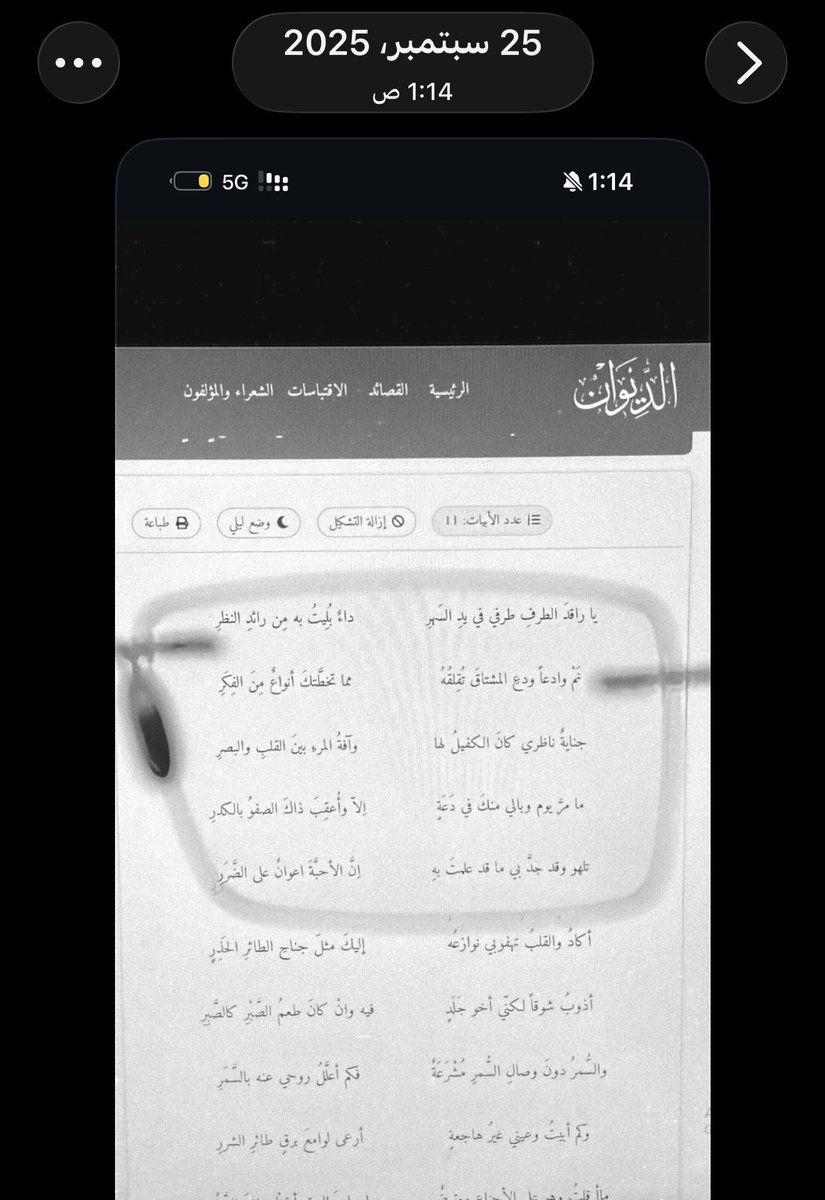 25 سبتمبر، 2025
1:14 ص
5G
1:14
الدِّيوَانْ
الرئيسية القصائد الاقتباسات الشعراء والمؤلفون
عدد الأبيات: ١١ إزالة التشكيل وضع ليلي طباعة
يا راقدَ الطرفِ طرفي في يدِ السَهرِ داءٌ بُلِيتُ به مِن رائدِ النظرِ
نَمْ وادعاً ودعِ المشتاقَ تُقِلقُهُ مما تخطَّتكَ أنواعٌ مِنَ الفِكَرِ
جنايةٌ ناظري كانَ الكفيلُ لها وآفةُ المرءِ بينَ القلبِ والبصرِ
ما مرَّ يوم وبالي منكَ في دَعَةٍ اِلاّ وأُعقِبَ ذاكَ الصفوُ بالكدرِ
تلهو وقد جدَّ بي ما قد علمتَ بهِ اِنَّ الأحبَّةَ اعوانٌ على الضَّرَرِ
أكادُ والقلبُ تهفوبي نوازعُه إليكَ مثلَ جناحِ الطائرِ الحَذِرِ
أذوبُ شوقاً لكنّي أخو جَلَدٍ فيه وانْ كانَ طعمُ الصَّبْرِ كالصَّبِرِ
والسُّمرُ دونَ وصالِ السُّمرِ مُشْرَعَةٌ فكم أعلَّلُ روحي عنه بالسَّمَرِ
وكم أبيتُ وعيني غيرُ هاجعةٍ أرعى لوامعَ برقٍ طائرِ الشررِ